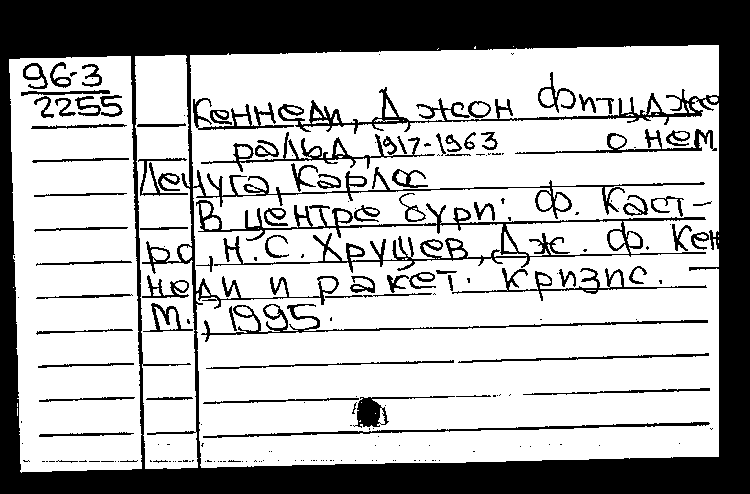 96-3
2255
Кеннеди, Джон Фитцдже
ральд, 1917-1963 о нем
Лечуга, Карлос
В центре бури: Ф. Каст-
ро, Н.С. Хрущев, Дж. Ф. Кен
неди и ракет. кризис. –
М., 1995.